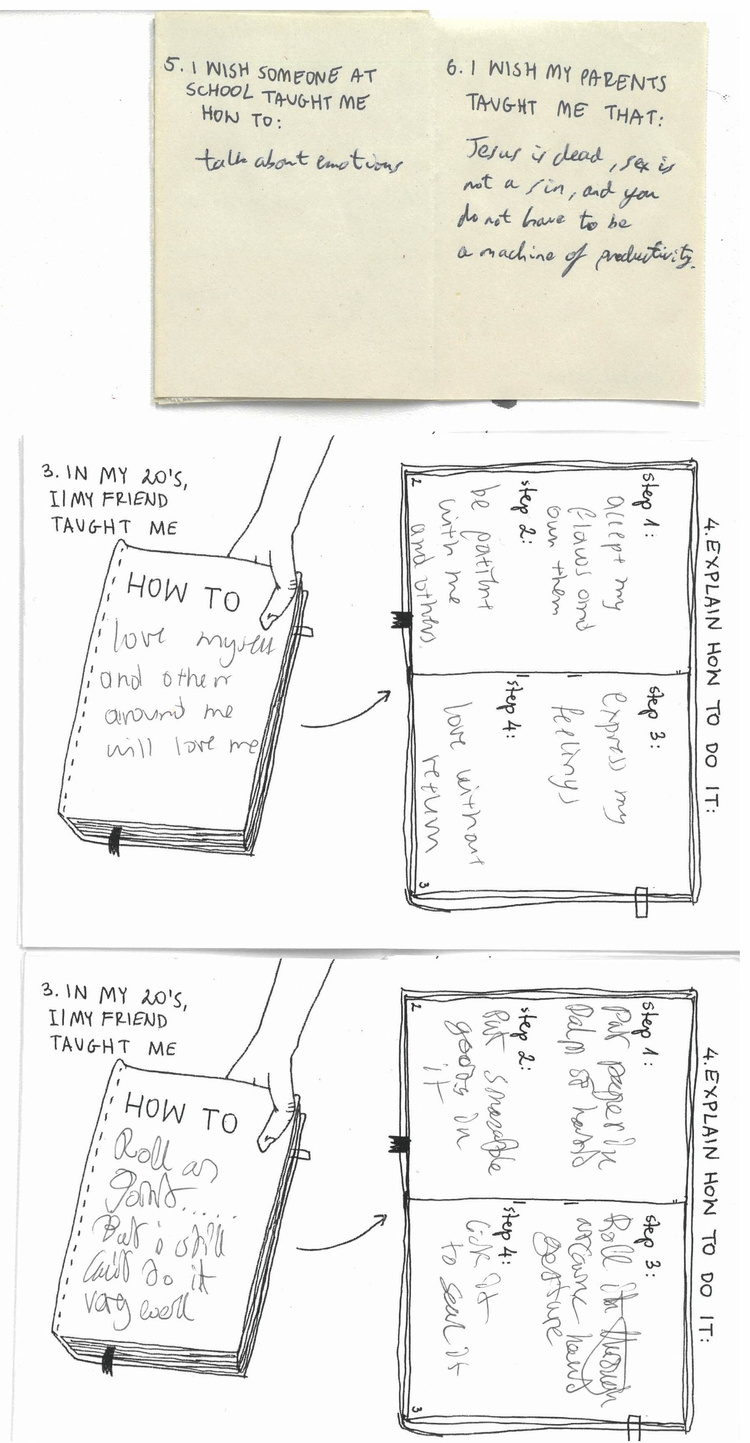 5. I WISH SOMEONE AT
SCHOOL TAUGHT ME
HOW TO:
talk about emotions
6. I WISH MY PARENTS
TAUGHT ME THAT:
Jesus is dead, sex is
not a sin, and you
do not have to be
a machine of productivity.
3. IN MY 20'S,
I/MY FRIEND
TAUGHT ME
HOW TO
love myself
and others
around me
will love me
4. EXPLAIN HOW TO DO IT:
step 1:
accept my
flaws and
own them
step 2:
be patient
with me
and others.
2
step 3:
express my
feelings
step 4:
love without
return
3
3. IN MY 20'S,
I/MY FRIEND
TAUGHT ME
HOW TO
Roll a
Joint......
But i still
can't do it
very well
4. EXPLAIN HOW TO DO IT:
step 1:
Put paper in
Palm of hand
step 2:
Put smokable
goods in
it
2
step 3:
Roll it through
hand
gesture
step 4:
Lick it
to seal it
3